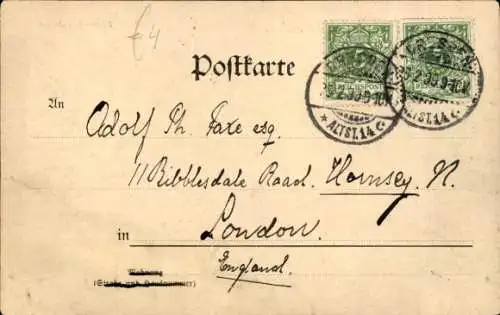 £4
Postkarte
An
Adolf Ph. Faxe esq.
11 Bibblesdale Road. Hornsey. N.
in London.
England.
Wohnung
(Straße und Hausnummer)
* ALTST.14 c.
* ALTST.14 c.